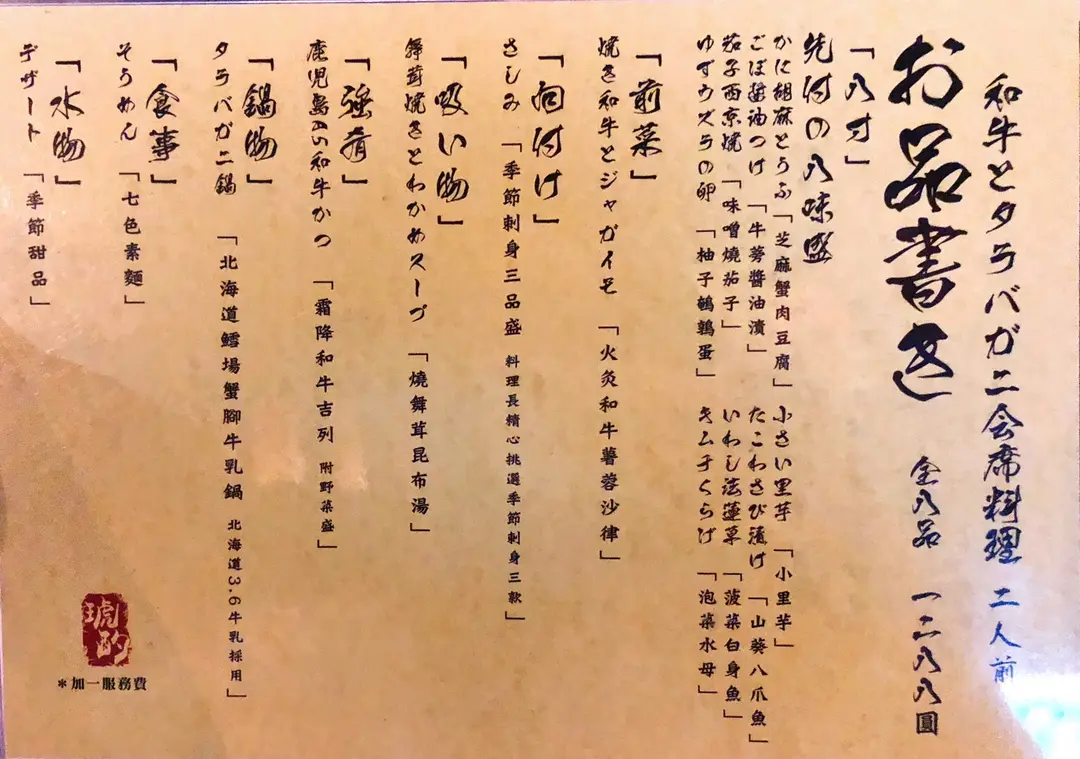 和牛とタラバガニ会席料理 二人前
お品書き 全八品 一二八八圓
「八寸」
先付の八味盛
かに胡麻とうふ「芝麻蟹肉豆腐」小さい里芋「小里芋」
ごぼ醤油つけ「牛蒡醬油漬」たこわさび漬け「山葵八爪魚」
茄子西京焼「味噌燒茄子」いわし法蓮草「菠菜白身魚」
ゆずウズラの卵「柚子鵪鶉蛋」キムチくらげ「泡菜水母」
「前菜」
焼き和牛とジャガイモ「火灸和牛薯蓉沙律」
「向付け」
さしみ「季節刺身三品盛 料理長精心挑選季節刺身三款」
「吸い物」
舞茸焼きとわかめスープ「燒舞茸昆布湯」
「強肴」
鹿児島A5和牛かつ「霜降和牛吉列 附野菜盛」
「鍋物」
タラバガニ鍋「北海道鱈場蟹腳牛乳鍋 北海道3.6牛乳採用」
「食事」
そうめん「七色素麵」
「水物」
デザート「季節甜品」
琥酌
*加一服務費